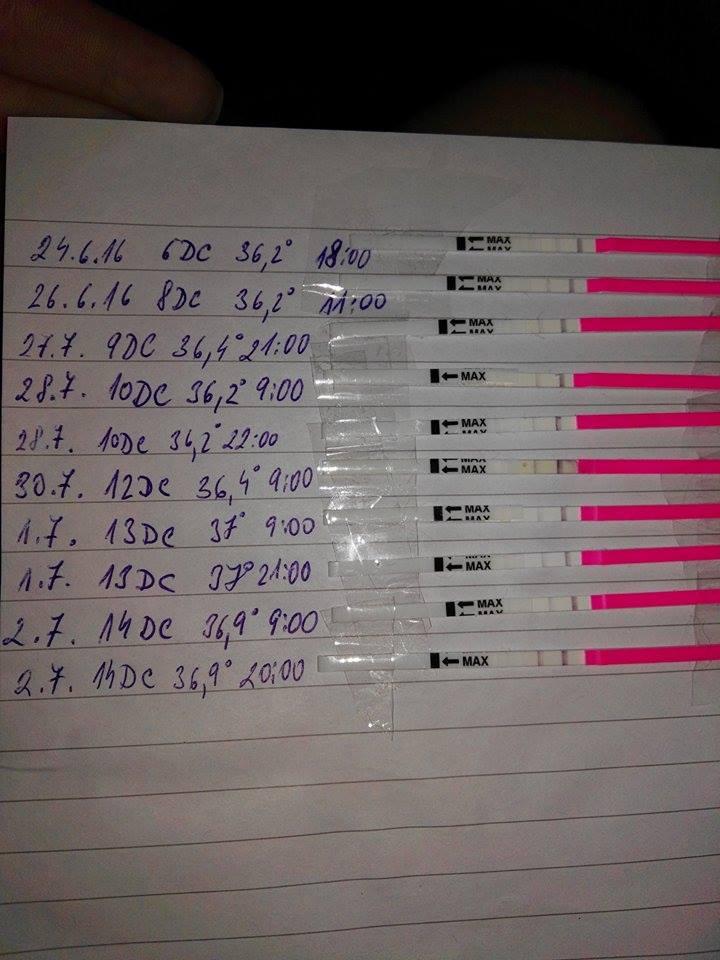 24.6.16 6DC 36,2° 18:00 MAX MAX
26.6.16 8DC 36,2° 11:00 MAX MAX
27.7. 9DC 36,4° 21:00 MAX MAX
28.7. 10DC 36,2° 9:00 MAX
28.7. 10DC 36,2° 22:00 MAX MAX
30.7. 12DC 36,4° 9:00 MAX MAX
1.7. 13DC 37° 9:00 MAX MAX
1.7. 13DC 37° 21:00 MAX MAX
2.7. 14DC 36,9° 9:00 MAX MAX
2.7. 14DC 36,9° 20:00 MAX